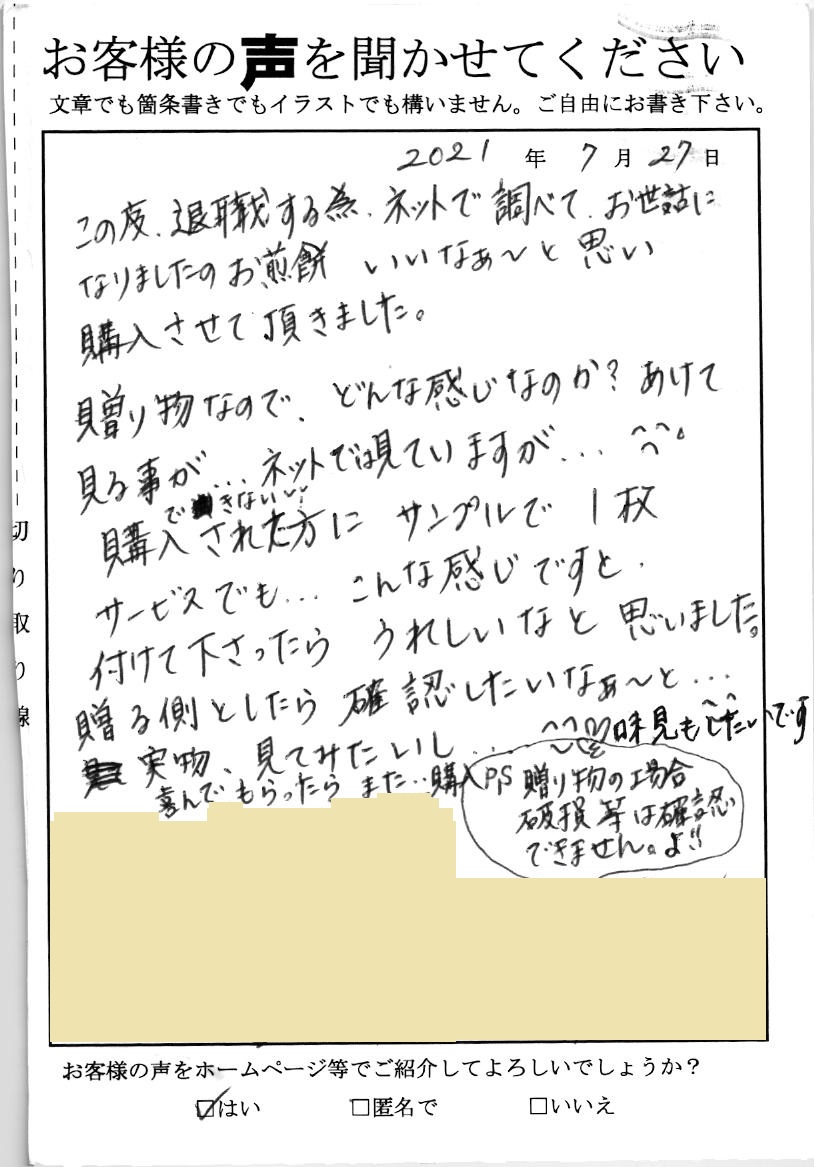 お客様の声を聞かせてください
文章でも箇条書きでもイラストでも構いません。ご自由にお書き下さい。
2021 年 7 月 27 日
この度、退職する為、ネットで調べて、お世話に
なりましたのお煎餅 いいなぁ~と思い
購入させて頂きました。
贈り物なので、どんな感じなのか?あけて
見る事が...ネットでは見ていますが...
できないし
購入された方に サンプルで 1枚
サービスでも...こんな感じですと、
付けて下さったら うれしいなと思いました。
贈る側としたら 確認したいなぁ~と...
実物、見てみたいし... 味見もしたいです
喜んでもらったら また...購入
PS 贈り物の場合
破損等は確認
できません。よ!!
切り取り線
お客様の声をホームページ等でご紹介してよろしいでしょうか?
☑はい □匿名で □いいえ